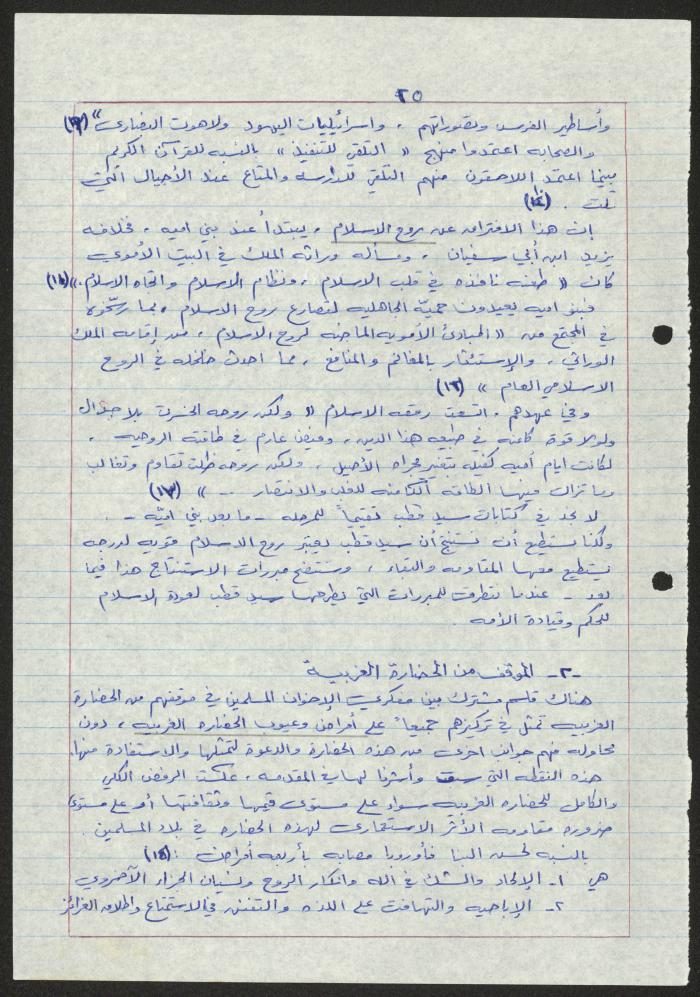 ٢٥
وأساطير الفرس وتصوراتهم ، واسرائيليات اليهود ولاهوت النصارى" (١٣)
والصحابه اعتمدوا منهج « التلقي للتنفيذ » بالنسبه للقرآن الكريم
بينما اعتمد اللاحقون منهم التلقي للدراسه والمتاع عند الأجيال التي
تلت . (١٤)
إن هذا الافتراق عن روح الاسلام ، يبتدأ عند بني اميه ، فخلافه
يزيد ابن أبي سفيان ، ومسأله وراثه الملك في البيت الأموي
كان « طعنه نافذه في قلب الاسلام ، ونظام الاسلام واتجاه الاسلام .» (١٥)
فبنو اميه يعيدون حميّة الجاهليه لتصارع روح الاسلام ، بما رسّخوه
في المجتمع من « المبادئ الأمويه المناهضه لروح الاسلام ، من إقامه الملك
الوراثي ، والإستئثار بالمغانم والمنافع ، مما احدث خلخله في الروح
الاسلامي العام » (١٦)
وفي عهدهم ، اتسعت رقعه الاسلام « ولكن روحه انحسرت بلا جدال
ولولا قوة كامنه في طبيعه هذا الدين ، وفيض عارم في طاقته الروحيه ،
لكانت ايام أميه كفيله بتغيير مجراه الأصيل ، ولكن روحه ظلت تقاوم وتغالب
وما تزال فيها الطاقه الكامنه للغلب والانتصار .. » (١٧)
لا نجد في كتابات سيد قطب تقييماً للمرحله - ما بعد بني اميّه - .
ولكنا نستطيع أن نستنتج أن سيد قطب يعتبر روح الاسلام قويه لدرجه
يستطيع معها المقاومه والبقاء ، وستتضح مبررات الاستنتاج هذا فيما
بعد - عندما نتطرق للمبررات التي يطرحها سيد قطب لعودة الاسلام
للحكم وقيادة الأمه .
-٢- الموقف من الحضارة الغربيه
هناك قاسم مشترك بين مفكري الإخوان المسلمين في موقفهم من الحضارة
الغربيه تمثل في تركيزهم جميعاً على أمراض وعيوب الحضاره الغربيه ، دون
محاوله فهم جوانب اخرى من هذه الحضارة والدعوة لتمثلها والاستفادة منها.
هذه النقطه التي سبق وأشرنا لها في المقدمه ، عكست الرفض الكلي
والكامل للحضاره الغربيه سواء على مستوى قيمها وثقافتها أو على مستوى
ضروره مقاومه الأثر الاستعمارى لهذه الحضاره في بلاد المسلمين .
بالنسبه لحسن البنا فأوروبا مصابه بأربعه أمراض : (١٨)
هي ١- الإلحاد والشك في الله وانكار الروح ونسيان الجزاء الآخروي
٢- الإباحيه والتهافت على اللذه والتفنن في الاستمتاع واطلاق الغرائز